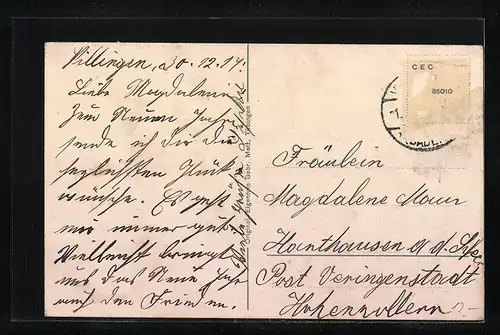 Villingen, 30.12.17.
Liebe Magdalena!
Zum Neuen Jahr
sende ich dir die
herzlichsten Glück
wünsche. Es geht
mir immer gut.
Vielleicht bringt
uns das Neue Jahr
auch den Frieden.
CEC
86010
Fräulein
Magdalene Maur
Harthausen a. d. Scher
Post Veringenstadt
Hohenzollern
12.-